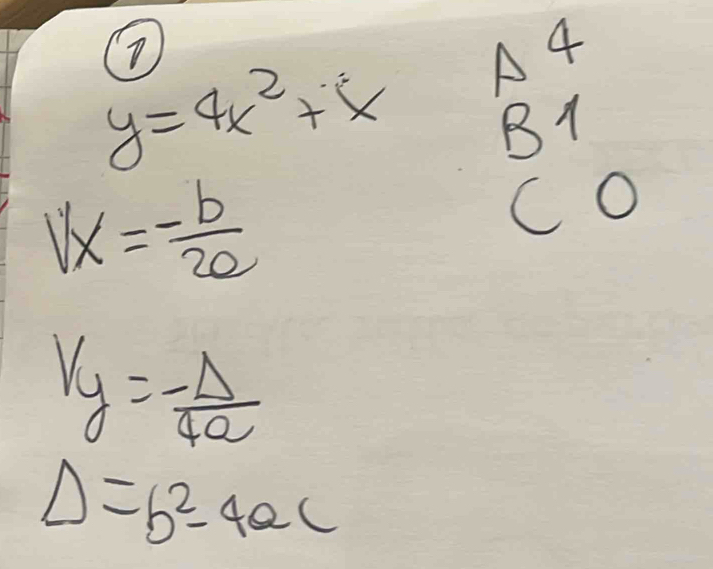 1
y=4x²+x
A 4
B 1
C 0
Vx=-b/2a
Vy=-Δ/4a
Δ=b²-4ac